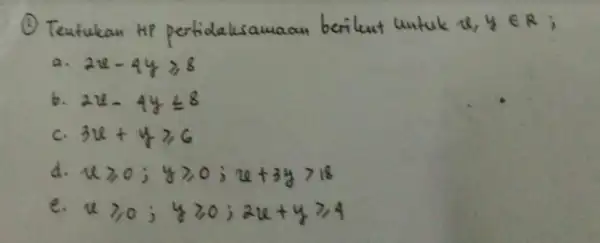 ① Tentukan HP pertidaksamaan berikut untuk x, y ∈ R ;
a. 2x - 4y ≥ 8
b. 2x - 4y ≤ 8
c. 3x + y ≥ 6
d. x ≥ 0 ; y ≥ 0 ; x + 3y > 18
e. x ≥ 0 ; y ≥ 0 ; 2x + y ≥ 4